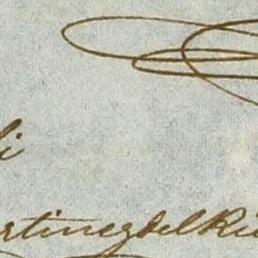 li
rtinezdelRi